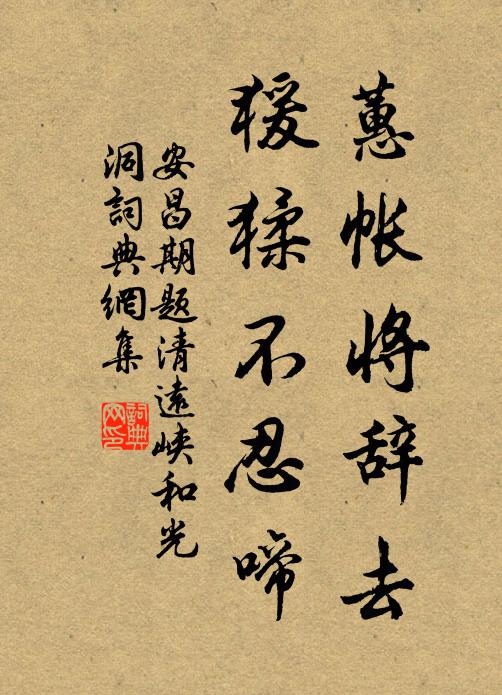 蕙帐将辞去
猨猱不忍啼
安昌期题清远峡和光
洞词典网集
词典网印